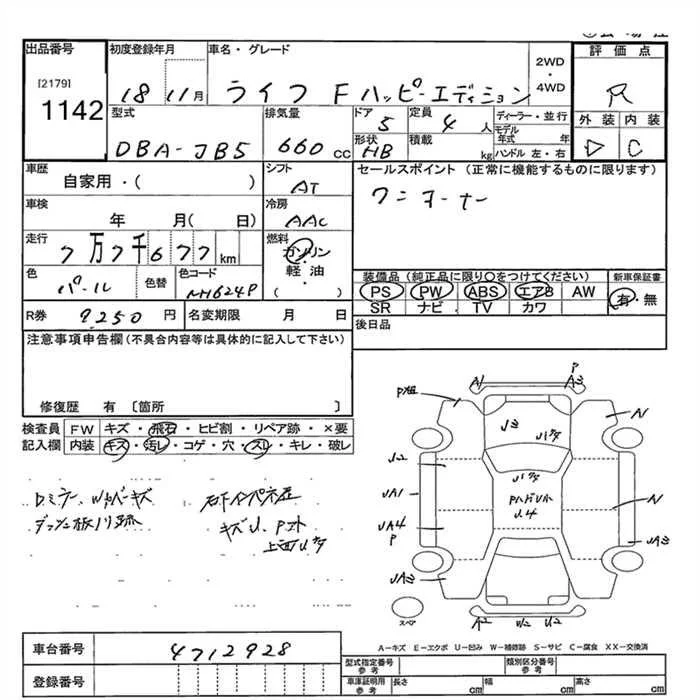 出品番号
[2179]
1142
初度登録年月
18 11月
車名・グレード
ライフ F ハッピーエディション
2WD
・
4WD
評価点
R
外装 内装
D C
型式
DBA-JB5
排気量
660 cc
ドア
5
定員
4 人
ディーラー・並行
モデル年式 年
ハンドル 左・右
形状
HB
積載
kg
車歴
自家用・( )
シフト
AT
セールスポイント (正常に機能するものに限ります)
ワンオーナー
車検
年 月( 日)
冷房
AAC
走行
7万7千677km
燃料
ガソリン
・
軽油
( )
色
パール
色替
色コード
NH624P
装備品(純正品に限り○をつけてください)
PS PW ABS エアB AW
SR ナビ TV カワ
新車保証書
有・無
R券 9250 円
名変期限 月 日
後日品
注意事項申告欄(不具合内容等は具体的に記入して下さい)
修復歴 有 〔箇所 〕
検査員記入欄
FW キズ・飛石・ヒビ割・リペア跡・×要
内装 キズ・汚レ・コゲ・穴・スレ・キレ・破レ
キズU、P
A1
P
A3
A1
U3
U2
UA1
UA4
P
UA3
U4
A
UA3
A2
U2
U2
スペア
A-キズ E-エクボ U-凹み W-補修跡 S-サビ C-腐食 XX-交換済
車台番号 4712928
登録番号
型式指定番号
参考
類別区分番号
参考
車庫証明用
参考
長さ cm
幅 cm
高さ cm